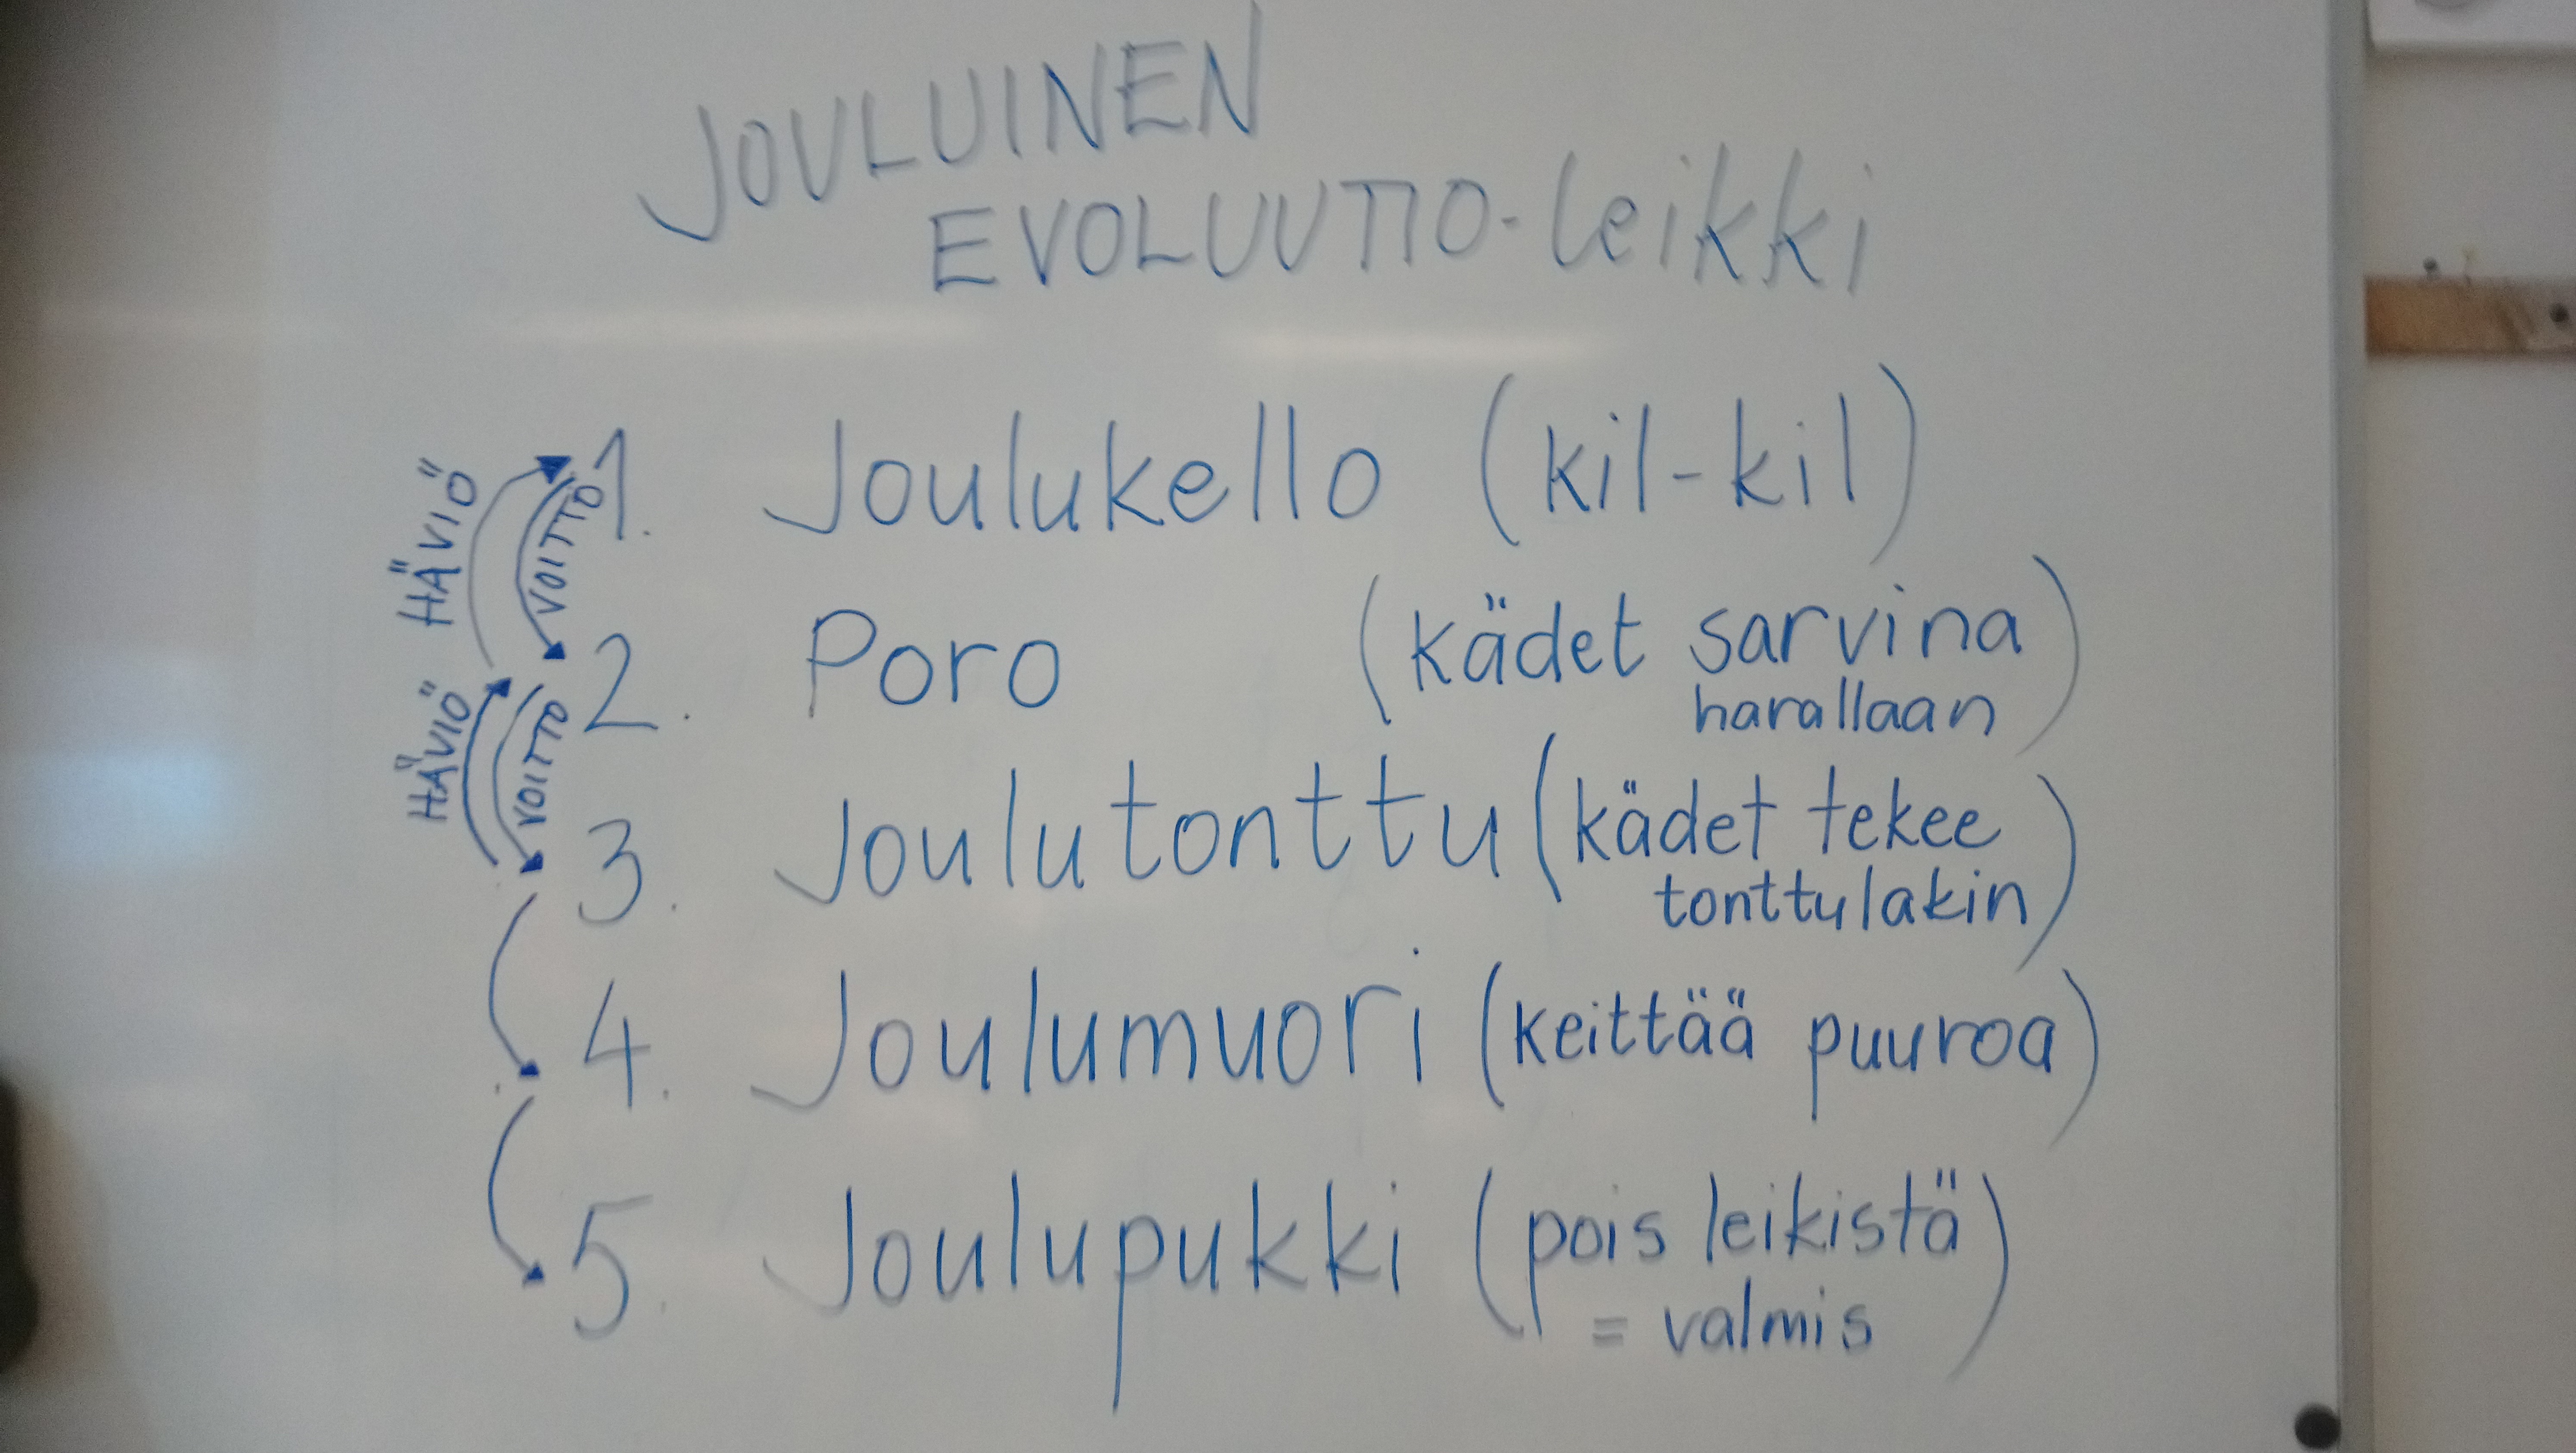 JOULUINEN
EVOLUUTIO-leikki
1. Joulukello (kil-kil)
HÄVIÖ
VOITTO
2. Poro (kädet sarvina
harallaan)
HÄVIÖ
VOITTO
3. Joulutonttu (kädet tekee
tonttulakin)
4. Joulumuori (keittää puuroa)
5. Joulupukki (pois leikistä
= valmis)